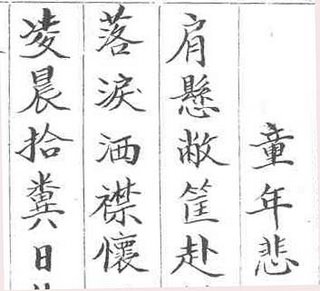 童年悲
肩懸敝筐赴
落淚洒襟懷
凌晨拾糞日